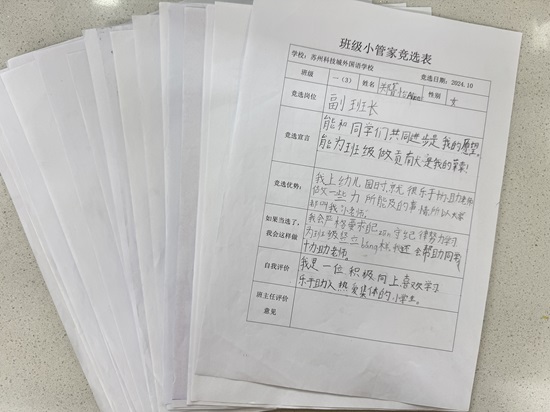 班级小管家竞选表
学校：苏州科技城外国语学校 竞选日期：2024.10
班级 一（3） 姓名 性别 女
竞选岗位 副班长
竞选宣言 能和同学们共同进步是我的愿望。
能为班级做贡献是我的荣幸！
竞选优势： 我上幼儿园时就很乐于协助老师
做一些力所能及的事情所以大家
都叫我小老师。
如果当选了， 我会严格要求自己 守纪律努力学习
我会这样做 为班级 bǎng样, 会帮助同学
协助老师。
自我评价 我是一位积极向上喜欢学习
乐于助人热爱集体的小学生。
班主任评价
意见